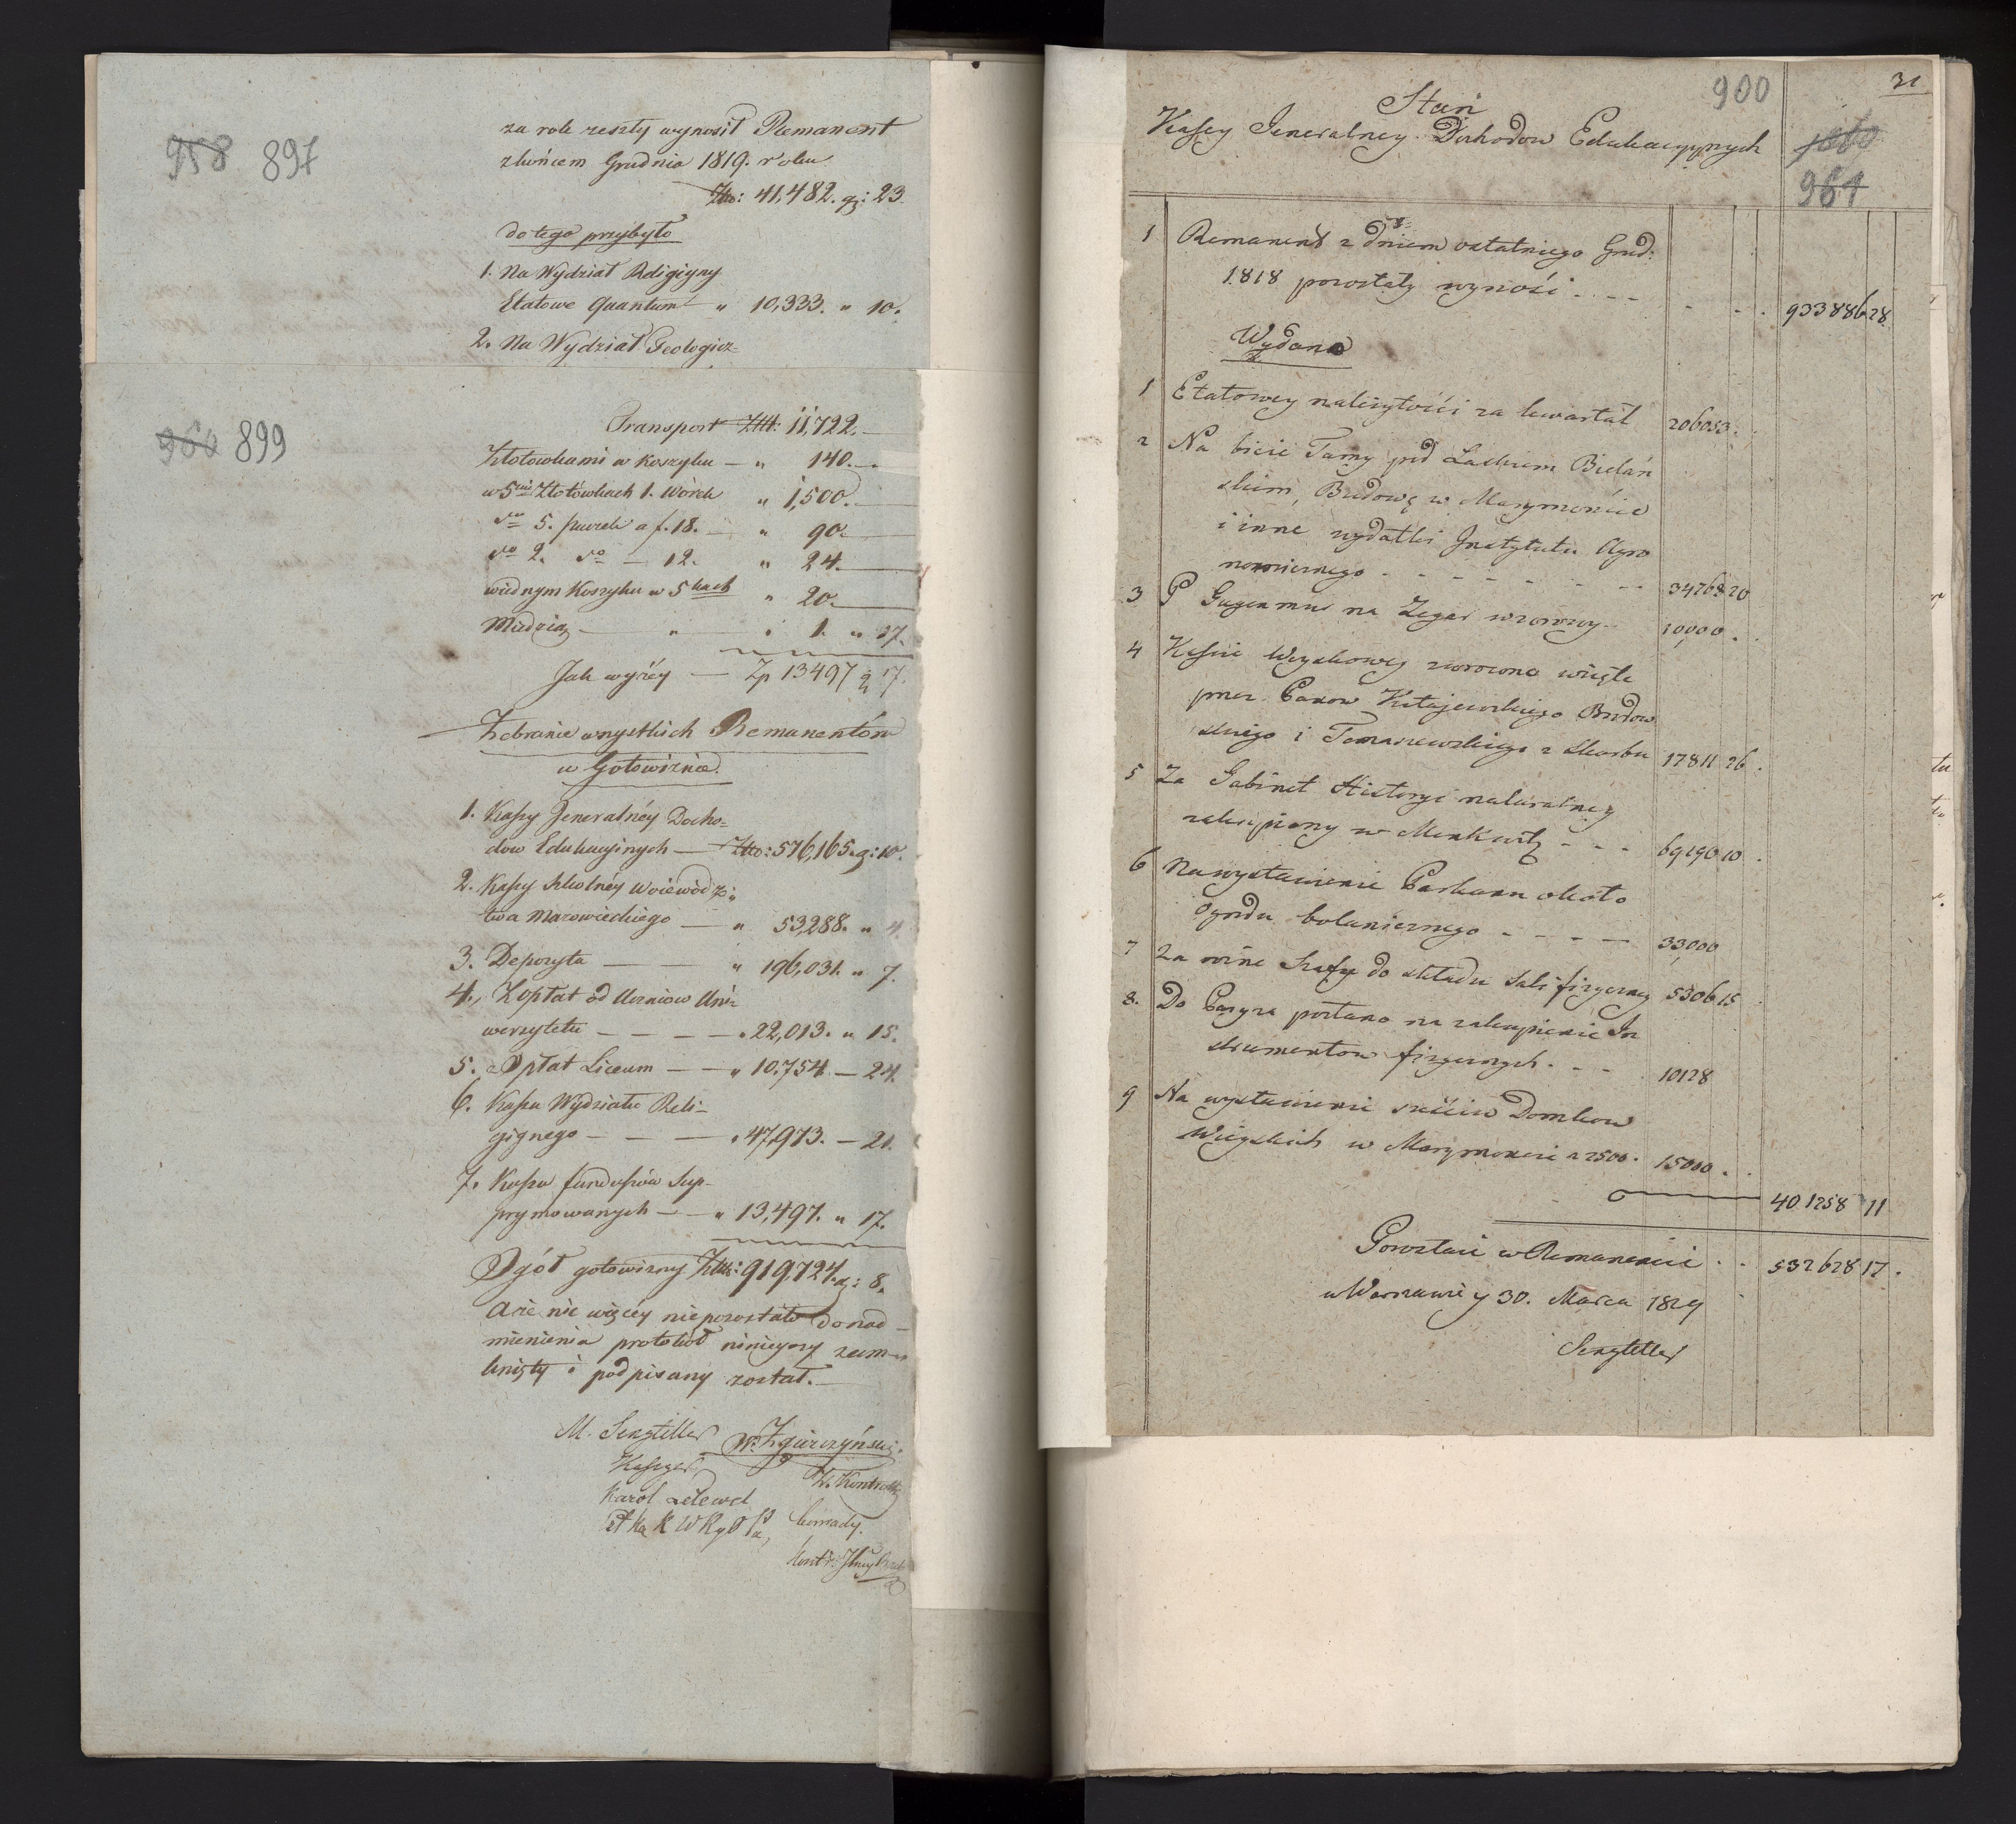 958 897
za role reszty wynosił Remanent
z końcem Grudnia 1819. roku
Złto: 41,482. gr: 23.
do tego przybyło
1. Na Wydział Religiyny
Etatowe Quantum „ 10,333. „ 10.
2. Na Wydział Teologicz=
960 899
Transport Złtt: 11,722.
Złotowkami w Koszyku — „ 140.
w 5cio Złotówkach 1. Worek „ 1,500.
do 5. paczek a f. 18. — „ 90.
do 2. do — 12. „ 24.
w iednym Koszyku w 5kach „ 20.
Miedzią — „ „ 1. „ 17.
Jak wyżey — Zp 13497 g 17.
Zebranie wszystkich Remanentów
w Gotowiznie.
1. Kassy Jeneralnéy Docho=
dow Edukacyinych — Złto: 576,165. g: 10.
2. Kassy szkolnéy Woiewódz=
twa Mazowieckiego — „ 53,288. „ 4.
3. Depozyta — „ 196,031. „ 7.
4. Z opłat od Uczniow Uni=
wersytetu — — — „ 22,013. „ 15.
5. Opłat Liceum — — „ 10,754. — 24.
6. Kassa Wydziału Reli=
giynego — — — „ 47,973. — 21.
7. Kassa funduszów Sup=
prymowanych — „ 13,497. „ 17.
Ogół gotowizny Złtt: 919,724. g: 8.
A że nic więcéy niepozostało do nad=
mienienia protokół ninieyszy zam=
knięty i podpisany został.
M. Senztteller W. Zgierzyński
Kassyer K. Kontroller
Karol Lelewel
900
31
Stan
Kassy Jeneralney Dochodow Edukacyynych
961
1 Remanent z dniem ostatniego Grud:
1818 pozostały wynosi . . . 933886 28
Wydano
1 Etatowey należytości za kwartał 206053.
2 Na bicie Tamy pod Laskiem Bielań
skim, Budowę w Marymoncie
i inne wydatki Instytutu Agro
nomicznego . . . 34768 20
3 P Gugenmus na Zegar wzorowy 10,000.
4 Kassie Woyskowey zwrocono wzięte
przez Panow Kitajewskiego Brodow
skiego i Tomaszewskiego z Skarbu 17811 26.
5 Za Gabinet Historyi naturalney
zakupiony w . . . 69190 10.
6 Na wystawienie Parkanu około
Ogrodu botanicznego . . . 33,000
7 Za rożne Szafy do składu Sali fizyczney 5306 15
8. Do Paryża posłano na zakupienie In
strumentow fizycznych . . . 10128
9 Na wystawienie sześciu Domkow
Wieyskich w Marymoncie a 2500. 15000.
401258 11
Pozostaie w Remanencie . . 532628 17.
w Warszawie 30. Marca 1819
Senztteller